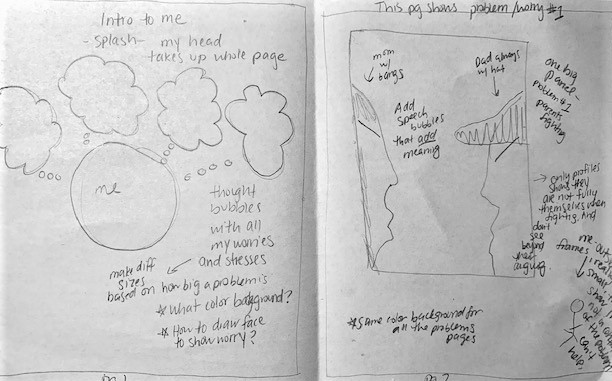 Intro to me
-splash- my head
takes up whole page
me
thought
bubbles
with all
my worries
and stresses
make diff
sizes
based on how big a problem is
* What color background?
* How to draw face
to show worry?
pg 1
This pg shows problem/worry #1
mom
w/
bangs
Dad always
w/ hat
Add
speech
bubbles
that add
meaning
one big
panel-
problem #1
parents
fighting
→ only profiles
shows they
are not fully
themselves when
fighting. And
don't
see
beyond
their
arguing.
me outside
frames
small
can't
help.
* Same color background for
all the problems
pages
pg 2